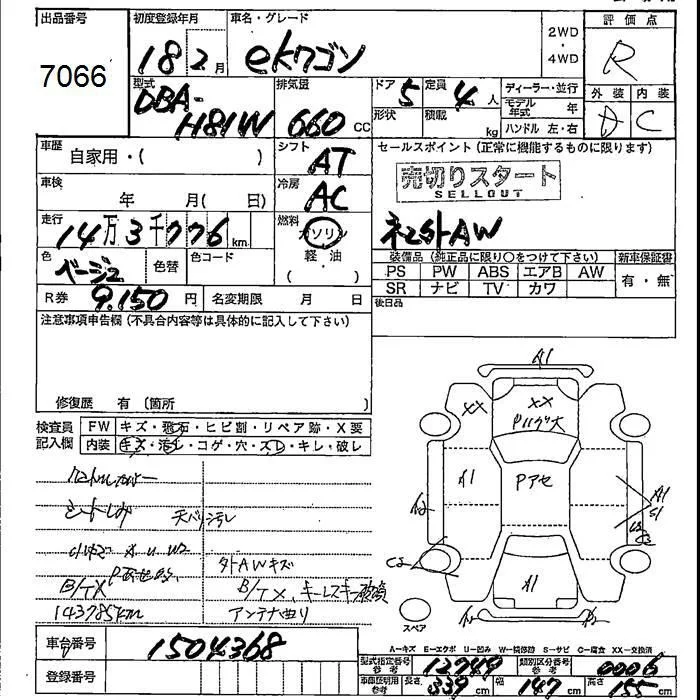 出品番号
7066
初度登録年月
18 2月
車名・グレード
eKワゴン
2WD
・
4WD
評価点
R
型式
DBA-
H81W
排気量
660 CC
ドア
5
定員
4人
形状
積載
kg
ディーラー・並行
モデル年式 年
ハンドル 左・右
外装 内装
C
車歴
自家用・( )
シフト
AT
セールスポイント (正常に機能するものに限ります)
売切りスタート
SELLOUT
車検
年 月( 日)
冷房
AC
社外AW
走行
14万3千776km
燃料
ガソリン
軽油
( )
色
ベージュ
色替
色コード
装備品 (純正品に限り○をつけて下さい)
新車保証書
PS PW ABS エアB AW
有・無
SR ナビ TV カワ
R券
9.150円
名変期限 月 日
後日品
注意事項申告欄 (不具合内容等は具体的に記入して下さい)
修復歴 有 (箇所
検査員記入欄
FW キズ・飛石・ヒビ割・リペア跡・X要
内装 キズ・汚レ・コゲ・穴・スレ・キレ・破レ
天バリ汚レ
外AWキズ
B/TX
B/TX、キーレスキー破損
143785km
アンテナ曲り
A1
XX
XX
A1
Pアセ
A1
A1
S1
A2
C2
A1
スペア
A-キズ E-エクボ U-凹み W-補修跡 S-サビ C-腐食 XX-交換済
車台番号
1504368
登録番号
型式指定番号 参考
12749
類別区分番号 参考
0006
車庫証明用 参考
長さ 339cm
幅 147cm
高さ 155cm